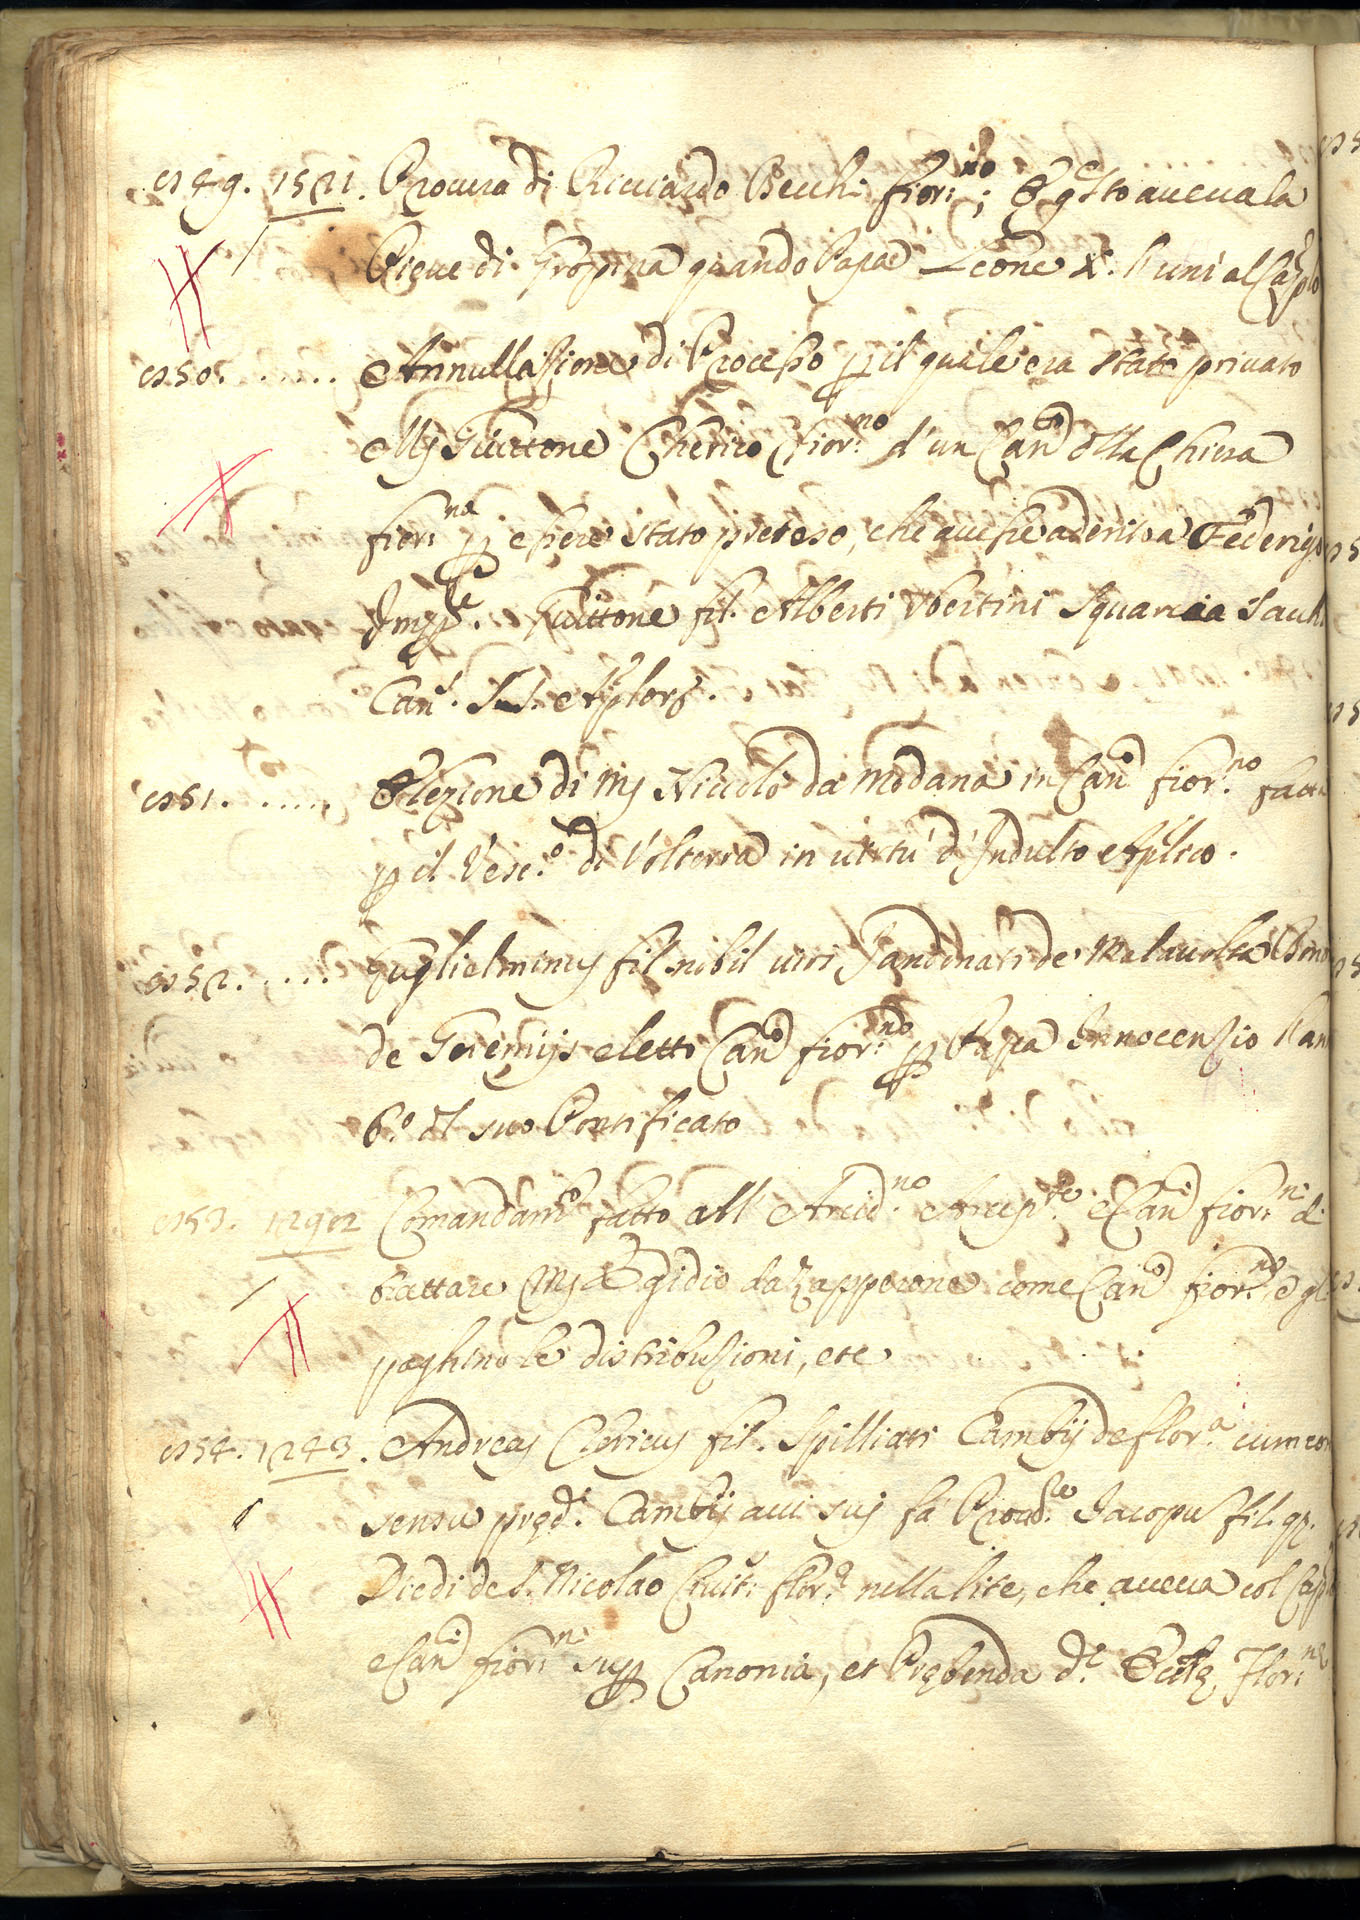 149. 1521. Procura di Ricciardo Becchi fior:no; E qsto aveva la
Pieve di Gropina quando Papa Leone X. l'unì al Cap.lo
150. ...... Annullazione di Processo p il quale era stato privato
Mſ Guittone Cherico fior:no d'un Can.to dlla Chiesa
fior:na p essere stato preteso, che avesse aderito a Federigo
Imp.re. Guittone fil. Alberti Ubertini Squarcia
Can. S.S. Aplorȝ.
151. ...... Elezione di Mſ Niccolò da Modana in Can.o fior:no fatta
p il Vesc.o di Volterra in virtù d'Indulto Aplico.
152. ..... Guglielminus fil. nobil viri de Malavolta
de Geremijs eletto Can.o fior:no p Papa Innocenzio l'an
6.o dl suo Pontificato
153. 1292 Comandam.to fatto all' Arcid.no Arcip.te e Can.i fior:ni di
trattare Mſ Egidio da Zapperone come Can.o fior:no, e gl
paghino le distribuzioni, etc
154. 1243. Andreas Clericus fil. Spilliati Cambij de flor.a cum con
sensu pręd.i Cambij avi sui fa Procu.re Iacopu fil. qȝ.
Diedi de S. Nicolao Civit: flor.ę nella lite, che aveva col Cap.
e Can.i fior:ni sup Canonia, et Prębenda d.ę Eccłę Flor:nę